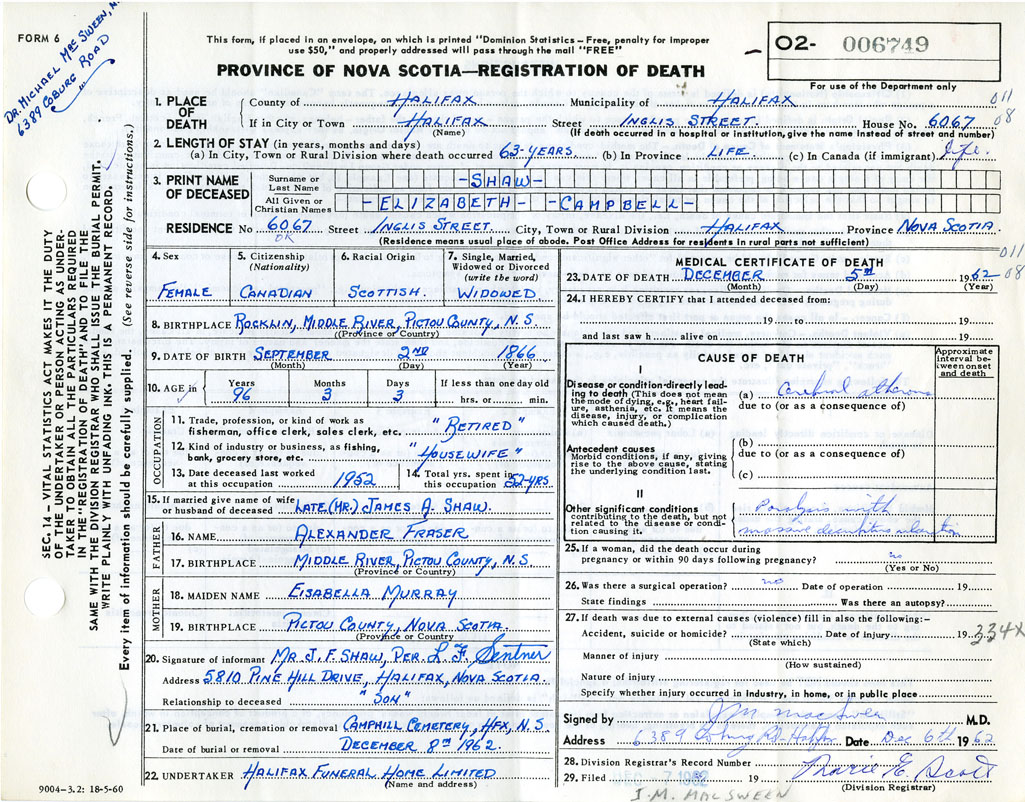 FORM 6
DR. MICHAEL MAC SWEEN,
6389 COBURG ROAD
This form, if placed in an envelope, on which is printed "Dominion Statistics – Free, penalty for improper
use $50," and properly addressed will pass through the mail "FREE"
O2- 006749
For use of the Department only
PROVINCE OF NOVA SCOTIA—REGISTRATION OF DEATH
1. PLACE OF DEATH
County of HALIFAX Municipality of HALIFAX 011
If in City or Town HALIFAX Street INGLIS STREET. House No. 6067 08
(Name) (If death occurred in a hospital or institution, give the name instead of street and number)
2. LENGTH OF STAY (in years, months and days)
(a) In City, Town or Rural Division where death occurred 63-YEARS (b) In Province LIFE (c) In Canada (if immigrant) Life.
3. PRINT NAME OF DECEASED
Surname or Last Name -SHAW-
All Given or Christian Names -ELIZABETH- -CAMPBELL-
RESIDENCE No 6067 Street INGLIS STREET City, Town or Rural Division HALIFAX Province NOVA SCOTIA
OK
(Residence means usual place of abode. Post Office Address for residents in rural parts not sufficient)
4. Sex
FEMALE
5. Citizenship
(Nationality)
CANADIAN
6. Racial Origin
SCOTTISH.
7. Single, Married,
Widowed or Divorced
(write the word)
WIDOWED
8. BIRTHPLACE ROCKLIN, MIDDLE RIVER, PICTOU COUNTY, N.S.
(Province or Country)
9. DATE OF BIRTH SEPTEMBER 2ND 1866
(Month) (Day) (Year)
10. AGE in
Years Months Days If less than one day old
96 3 3 hrs. or min.
OCCUPATION
11. Trade, profession, or kind of work as
fisherman, office clerk, sales clerk, etc. "RETIRED"
12. Kind of industry or business, as fishing,
bank, grocery store, etc. "HOUSEWIFE"
13. Date deceased last worked
at this occupation 1952
14. Total yrs. spent in
this occupation 52-YRS
15. If married give name of wife
or husband of deceased LATE (MR.) JAMES A. SHAW.
FATHER
16. NAME ALEXANDER FRASER
17. BIRTHPLACE MIDDLE RIVER, PICTOU COUNTY, N.S.
(Province or Country)
MOTHER
18. MAIDEN NAME EISABELLA MURRAY
19. BIRTHPLACE PICTOU COUNTY, NOVA SCOTIA.
(Province or Country
20. Signature of informant MR J. F. SHAW, PER L F Sentner
Address 5810 PINE HILL DRIVE, HALIFAX, NOVA SCOTIA.
Relationship to deceased "SON"
21. Place of burial, cremation or removal CAMPHILL CEMETERY, HFX, N.S.
Date of burial or removal DECEMBER 8TH 1962.
22. UNDERTAKER HALIFAX FUNERAL HOME LIMITED
(Name and address)
9004-3.2: 18-5-60
MEDICAL CERTIFICATE OF DEATH 011
23. DATE OF DEATH DECEMBER 5TH 1962 08
(Month) (Day) (Year)
24. I HEREBY CERTIFY that I attended deceased from:
19 to 19
and last saw h alive on 19
CAUSE OF DEATH
Approximate interval between onset and death
I
Disease or condition directly leading to death (This does not mean
the mode of dying, e.g., heart failure, asthenia, etc. It means the
disease, injury, or complication
which caused death.)
(a) Cerebral
due to (or as a consequence of)
Antecedent causes
Morbid conditions, if any, giving
rise to the above cause, stating
the underlying condition last.
(b)
due to (or as a consequence of)
(c)
II
Other significant conditions
contributing to the death, but not
related to the disease or condition causing it.
Paralysis with
massive decubitus ulceration
25. If a woman, did the death occur during
pregnancy or within 90 days following pregnancy? no
(Yes or No)
26. Was there a surgical operation? no Date of operation 19
State findings Was there an autopsy?
27. If death was due to external causes (violence) fill in also the following:-
Accident, suicide or homicide? Date of injury 19 334X
(State which)
Manner of injury
(How sustained)
Nature of injury
Specify whether injury occurred in Industry, in home, or in public place
Signed by J M MacSween M.D.
Address 6389 Coburg Rd. Halifax Date Dec 6th 1962
28. Division Registrar's Record Number
29. Filed DEC -7 1962 19 Marie E. Scott
(Division Registrar)
J.M. MACSWEEN
SEC. 14 – VITAL STATISTICS ACT MAKES IT THE DUTY
OF THE UNDERTAKER OR PERSON ACTING AS UNDERTAKER TO OBTAIN ALL THE PARTICULARS REQUIRED
IN THE "REGISTRATION OF DEATH" AND TO FILE THE
SAME WITH THE DIVISION REGISTRAR WHO SHALL ISSUE THE BURIAL PERMIT.
WRITE PLAINLY WITH UNFADING INK. THIS IS A PERMANENT RECORD.
Every item of information should be carefully supplied. (See reverse side for instructions.)